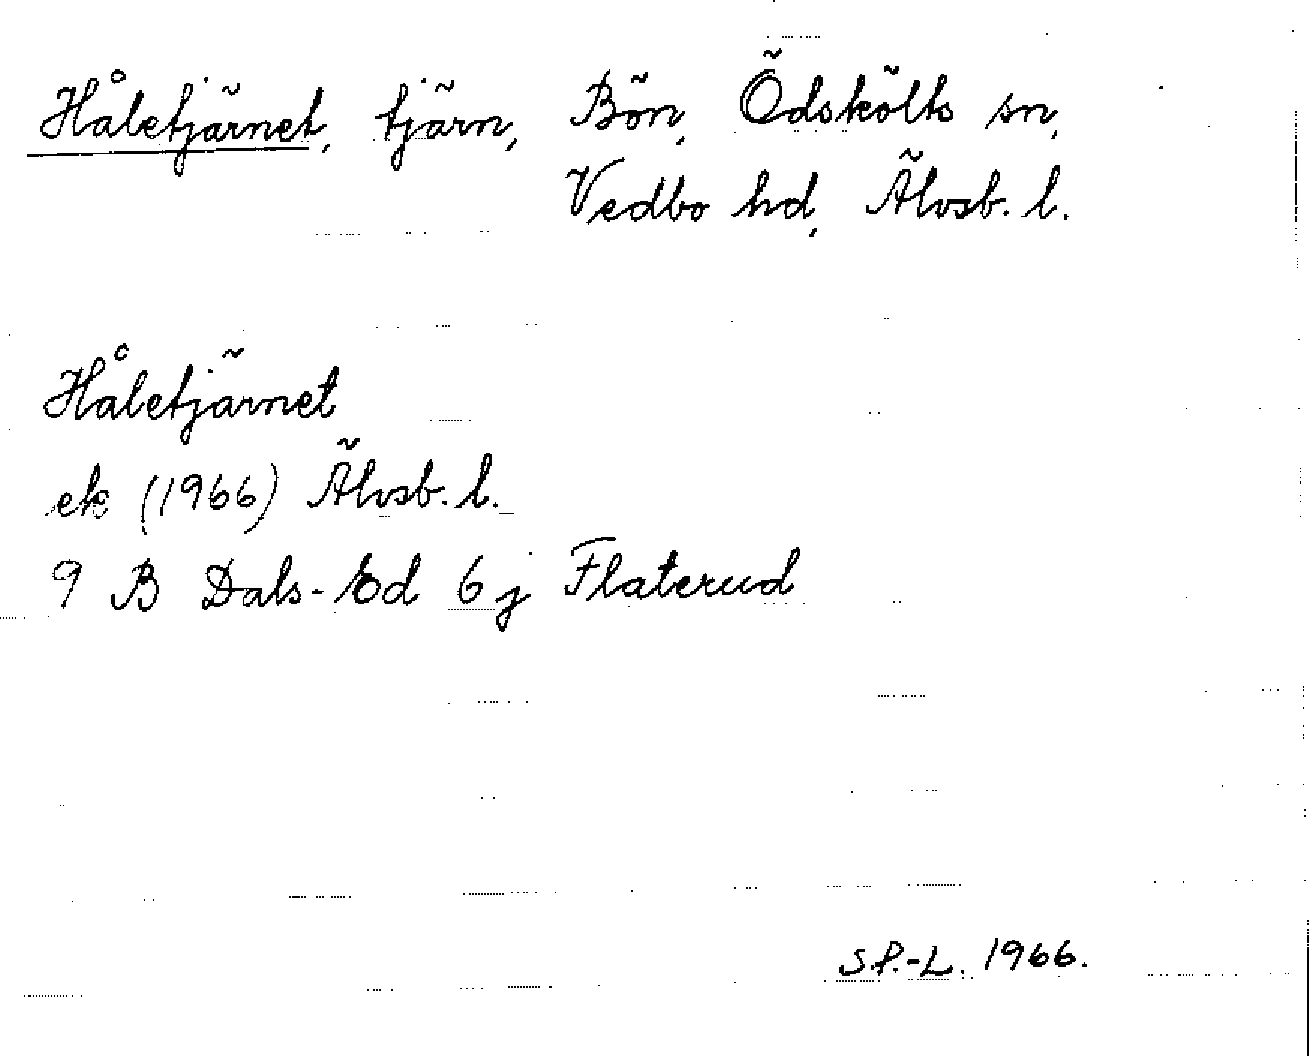 Håletjärnet, tjärn, Bön, Ödskölts sn,
Vedbo hd, Älvsb. l.
Håletjärnet
ek (1966) Älvsb. l.
9 B Dals-Ed 6 j Flaterud
S.P.-L. 1966.